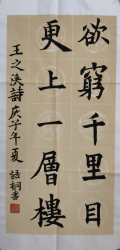 欲窮千里目
更上一層樓
王之渙詩庚子年夏